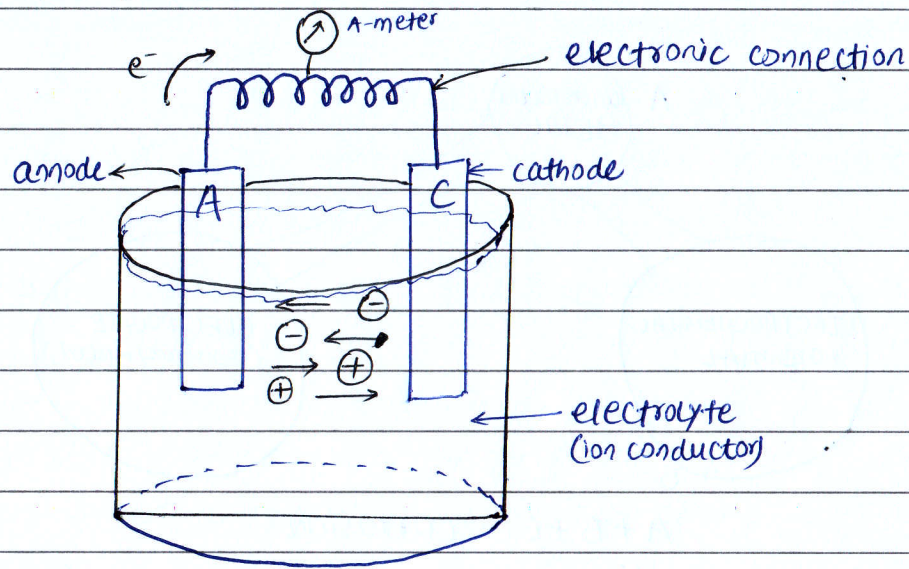 A-meter
e⁻
electronic connection
annode
cathode
A
C
⊖
⊖
⊕
⊕
electrolyte
(ion conductor)